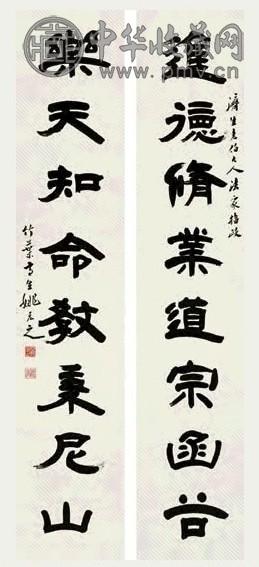 中华收藏网
www.pmv.cn
濤生老伯大人法家指政
進德脩業道宗函谷
樂天知命敎秉尼山
竹葉亭生姚元之